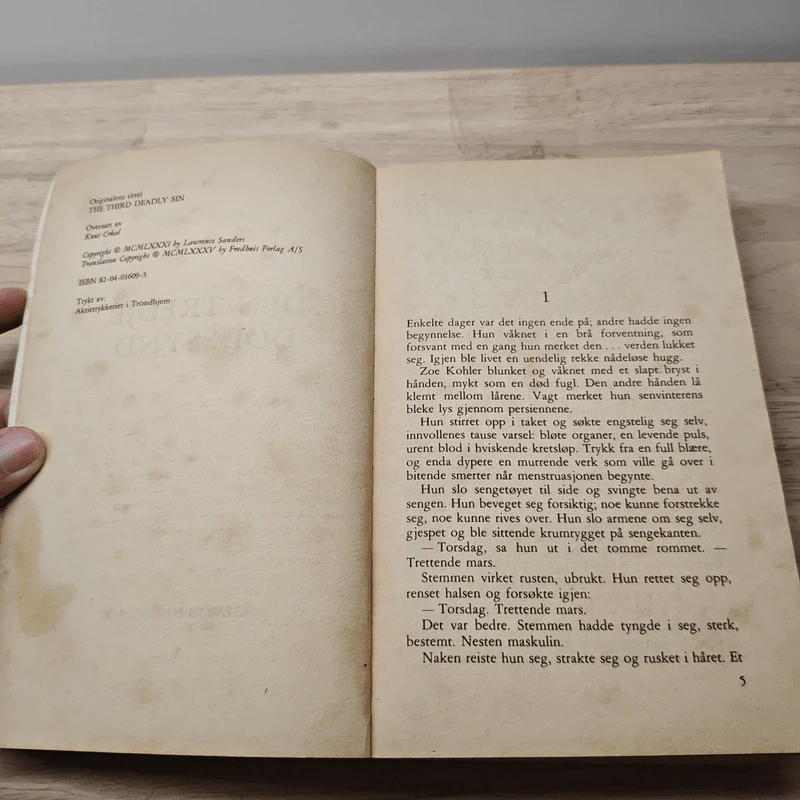 Originalens tittel
THE THIRD DEADLY SIN
Oversatt av
Knut Crkol
Copyright © MCMLXXXI by Lawrence Sanders
Translation Copyright © MCMLXXXV by Fredhøis Forlag A/S
ISBN 82-04-01609-3
Trykt av:
Aktietrykkeriet i Trondhjem
1
Enkelte dager var det ingen ende på; andre hadde ingen
begynnelse. Hun våknet i en brå forventning, som
forsvant med en gang hun merket den . . . verden lukket
seg. Igjen ble livet en uendelig rekke nådeløse hugg.
Zoe Kohler blunket og våknet med et slapt bryst i
hånden, mykt som en død fugl. Den andre hånden lå
klemt mellom lårene. Vagt merket hun senvinterens
bleke lys gjennom persiennene.
Hun stirret opp i taket og søkte engstelig seg selv,
innvollenes tause varsel: bløte organer, en levende puls,
urent blod i hviskende kretsløp. Trykk fra en full blære,
og enda dypere en murrende verk som ville gå over i
bitende smerter når menstruasjonen begynte.
Hun slo sengetøyet til side og svingte bena ut av
sengen. Hun beveget seg forsiktig; noe kunne forstrekke
seg, noe kunne rives over. Hun slo armene om seg selv,
gjespet og ble sittende krumrygget på sengekanten.
— Torsdag, sa hun ut i det tomme rommet. —
Trettende mars.
Stemmen virket rusten, ubrukt. Hun rettet seg opp,
renset halsen og forsøkte igjen:
— Torsdag. Trettende mars.
Det var bedre. Stemmen hadde tyngde i seg, sterk,
bestemt. Nesten maskulin.
Naken reiste hun seg, strakte seg og rusket i håret. Et
5